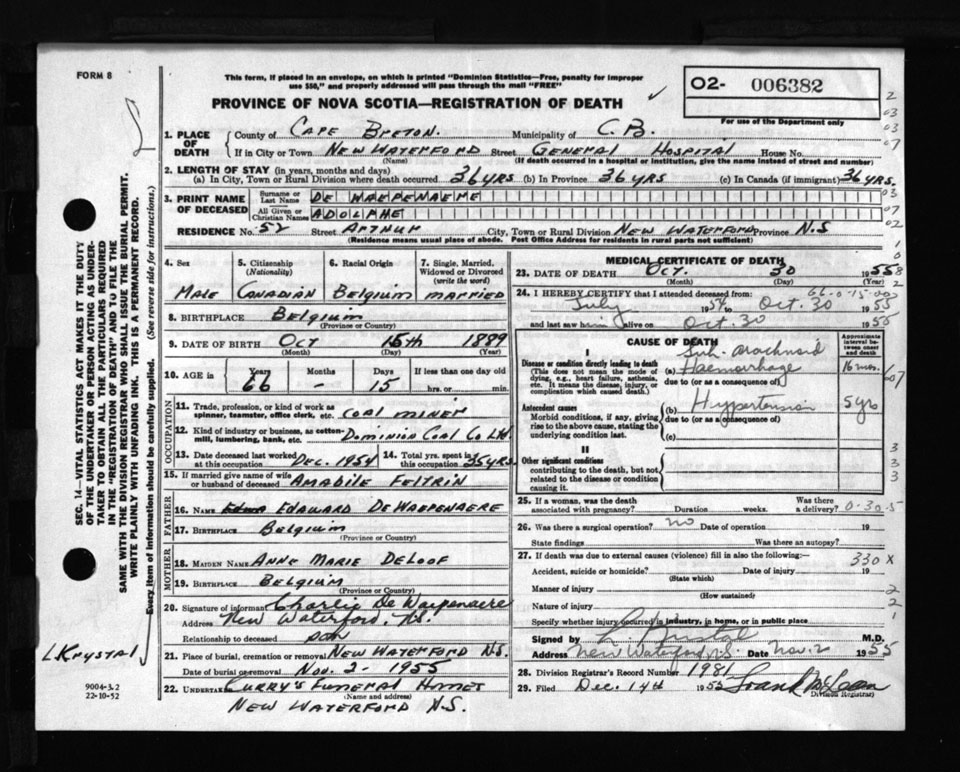 FORM 8
This form, if placed in an envelope, on which is printed "Dominion Statistics—Free, penalty for improper
use $50," and properly addressed will pass through the mail "FREE"
PROVINCE OF NOVA SCOTIA—REGISTRATION OF DEATH
O2- 006382
For use of the Department only
1. PLACE OF DEATH
County of CAPE BRETON. Municipality of C.B.
If in City or Town NEW WATERFORD Street GENERAL HOSPITAL House No.
(Name) (If death occurred in a hospital or institution, give the name instead of street and number)
2. LENGTH OF STAY (in years, months and days)
(a) In City, Town or Rural Division where death occurred 36 YRS (b) In Province 36 YRS (c) In Canada (if immigrant) 36 YRS.
3. PRINT NAME OF DECEASED
Surname or Last Name DE WAEPENAERE
All Given or Christian Names ADOLPHE
RESIDENCE No. 52 Street ARTHUR City, Town or Rural Division NEW WATERFORD Province N.S
(Residence means usual place of abode. Post Office Address for residents in rural parts not sufficient)
4. Sex
5. Citizenship (Nationality)
6. Racial Origin
7. Single, Married, Widowed or Divorced (write the word)
MALE CANADIAN BELGIUM MARRIED
8. BIRTHPLACE BELGIUM
(Province or Country)
9. DATE OF BIRTH OCT 15th 1889
(Month) (Day) (Year)
10. AGE in Years Months Days If less than one day old
66 - 15 hrs. or min.
OCCUPATION
11. Trade, profession, or kind of work as spinner, teamster, office clerk, etc. COAL MINER
12. Kind of industry or business, as cotton-mill, lumbering, bank, etc. DOMINION COAL CO LTD.
13. Date deceased last worked at this occupation DEC. 1954 14. Total yrs. spent in this occupation 35 YRS.
15. If married give name of wife or husband of deceased AMABILE FELTRIN
FATHER
16. NAME EDAWARD DEWAEPENAERE
17. BIRTHPLACE BELGIUM
(Province or Country)
MOTHER
18. MAIDEN NAME ANNE MARIE DELOOF
19. BIRTHPLACE BELGIUM
(Province or Country)
20. Signature of informant Charlie De Waepenaere
Address New Waterford, N.S.
Relationship to deceased son
21. Place of burial, cremation or removal NEW WATERFORD N.S.
Date of burial or removal NOV. 2 - 1955
22. Undertaker CURRY'S FUNERAL HOMES
(Name and address)
NEW WATERFORD N.S.
MEDICAL CERTIFICATE OF DEATH
23. DATE OF DEATH Oct. 30 1955
(Month) (Day) (Year)
24. I HEREBY CERTIFY that I attended deceased from: 66-0-15-00
July 1954 to Oct. 30 1955
and last saw h alive on Oct. 30 1955
CAUSE OF DEATH
Approximate interval between onset and death
I
Disease or condition directly leading to death
(This does not mean the mode of dying, e.g., heart failure, asthenia, etc. It means the disease, injury, or complication which caused death.)
(a) Sub-arachnoid Haemorrhage 16 mos.
due to (or as a consequence of)
Antecedent causes
Morbid conditions, if any, giving rise to the above cause, stating the underlying condition last.
(b) Hypertension 5 yrs
due to (or as a consequence of)
(c)
II
Other significant conditions
contributing to the death, but not related to the disease or condition causing it.
25. If a woman, was the death associated with pregnancy? Duration weeks. Was there a delivery? 0-30-5
26. Was there a surgical operation? no Date of operation 19
State findings Was there an autopsy?
27. If death was due to external causes (violence) fill in also the following:— 330 X
Accident, suicide or homicide? Date of injury 19
(State which)
Manner of injury
(How sustained)
Nature of injury
Specify whether injury occurred in industry, in home, or in public place
Signed by L Krystal M.D.
Address New Waterford, N.S. Date Nov. 2 1955
28. Division Registrar's Record Number 1981
29. Filed Dec. 14th 1955
Division Registrar)
SEC. 14—VITAL STATISTICS ACT MAKES IT THE DUTY
OF THE UNDERTAKER OR PERSON ACTING AS UNDER-
TAKER TO OBTAIN ALL THE PARTICULARS REQUIRED
IN THE "REGISTRATION OF DEATH" AND TO FILE THE
SAME WITH THE DIVISION REGISTRAR WHO SHALL ISSUE THE BURIAL PERMIT.
WRITE PLAINLY WITH UNFADING INK. THIS IS A PERMANENT RECORD.
Every item of information should be carefully supplied. (See reverse side for instructions.)
L KRYSTAL
9004-3.2
22-10-52